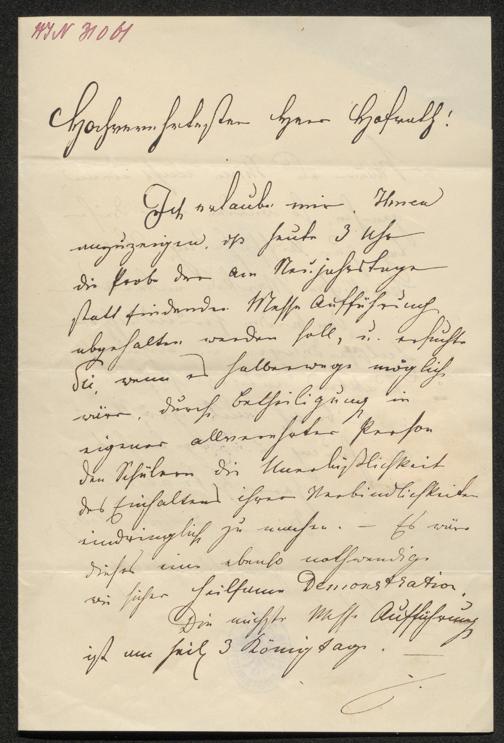 HJN 31061
Hochverehrtester Herr Hofrath!
Ich erlaube mir, Ihnen
anzuzeigen, dß heute 3 Uhr
die Probe der am Neujahrstage
statt findenden Messe Aufführung
abgehalten werden soll, u. ersuche
Sie, wenn es halberwegs möglich
wäre, durch Betheiligung in
eigener allverehrter Person
den Schülern die Unerläßlichkeit
des Einhaltens ihrer Verbindlichkeiten
eindringlich zu machen. – Es wäre
dieses eine ebenso nothwendige
wie sicher heilsame Demonstration.
Die nächste Messe Aufführung
ist am heil 3 Königtage. —